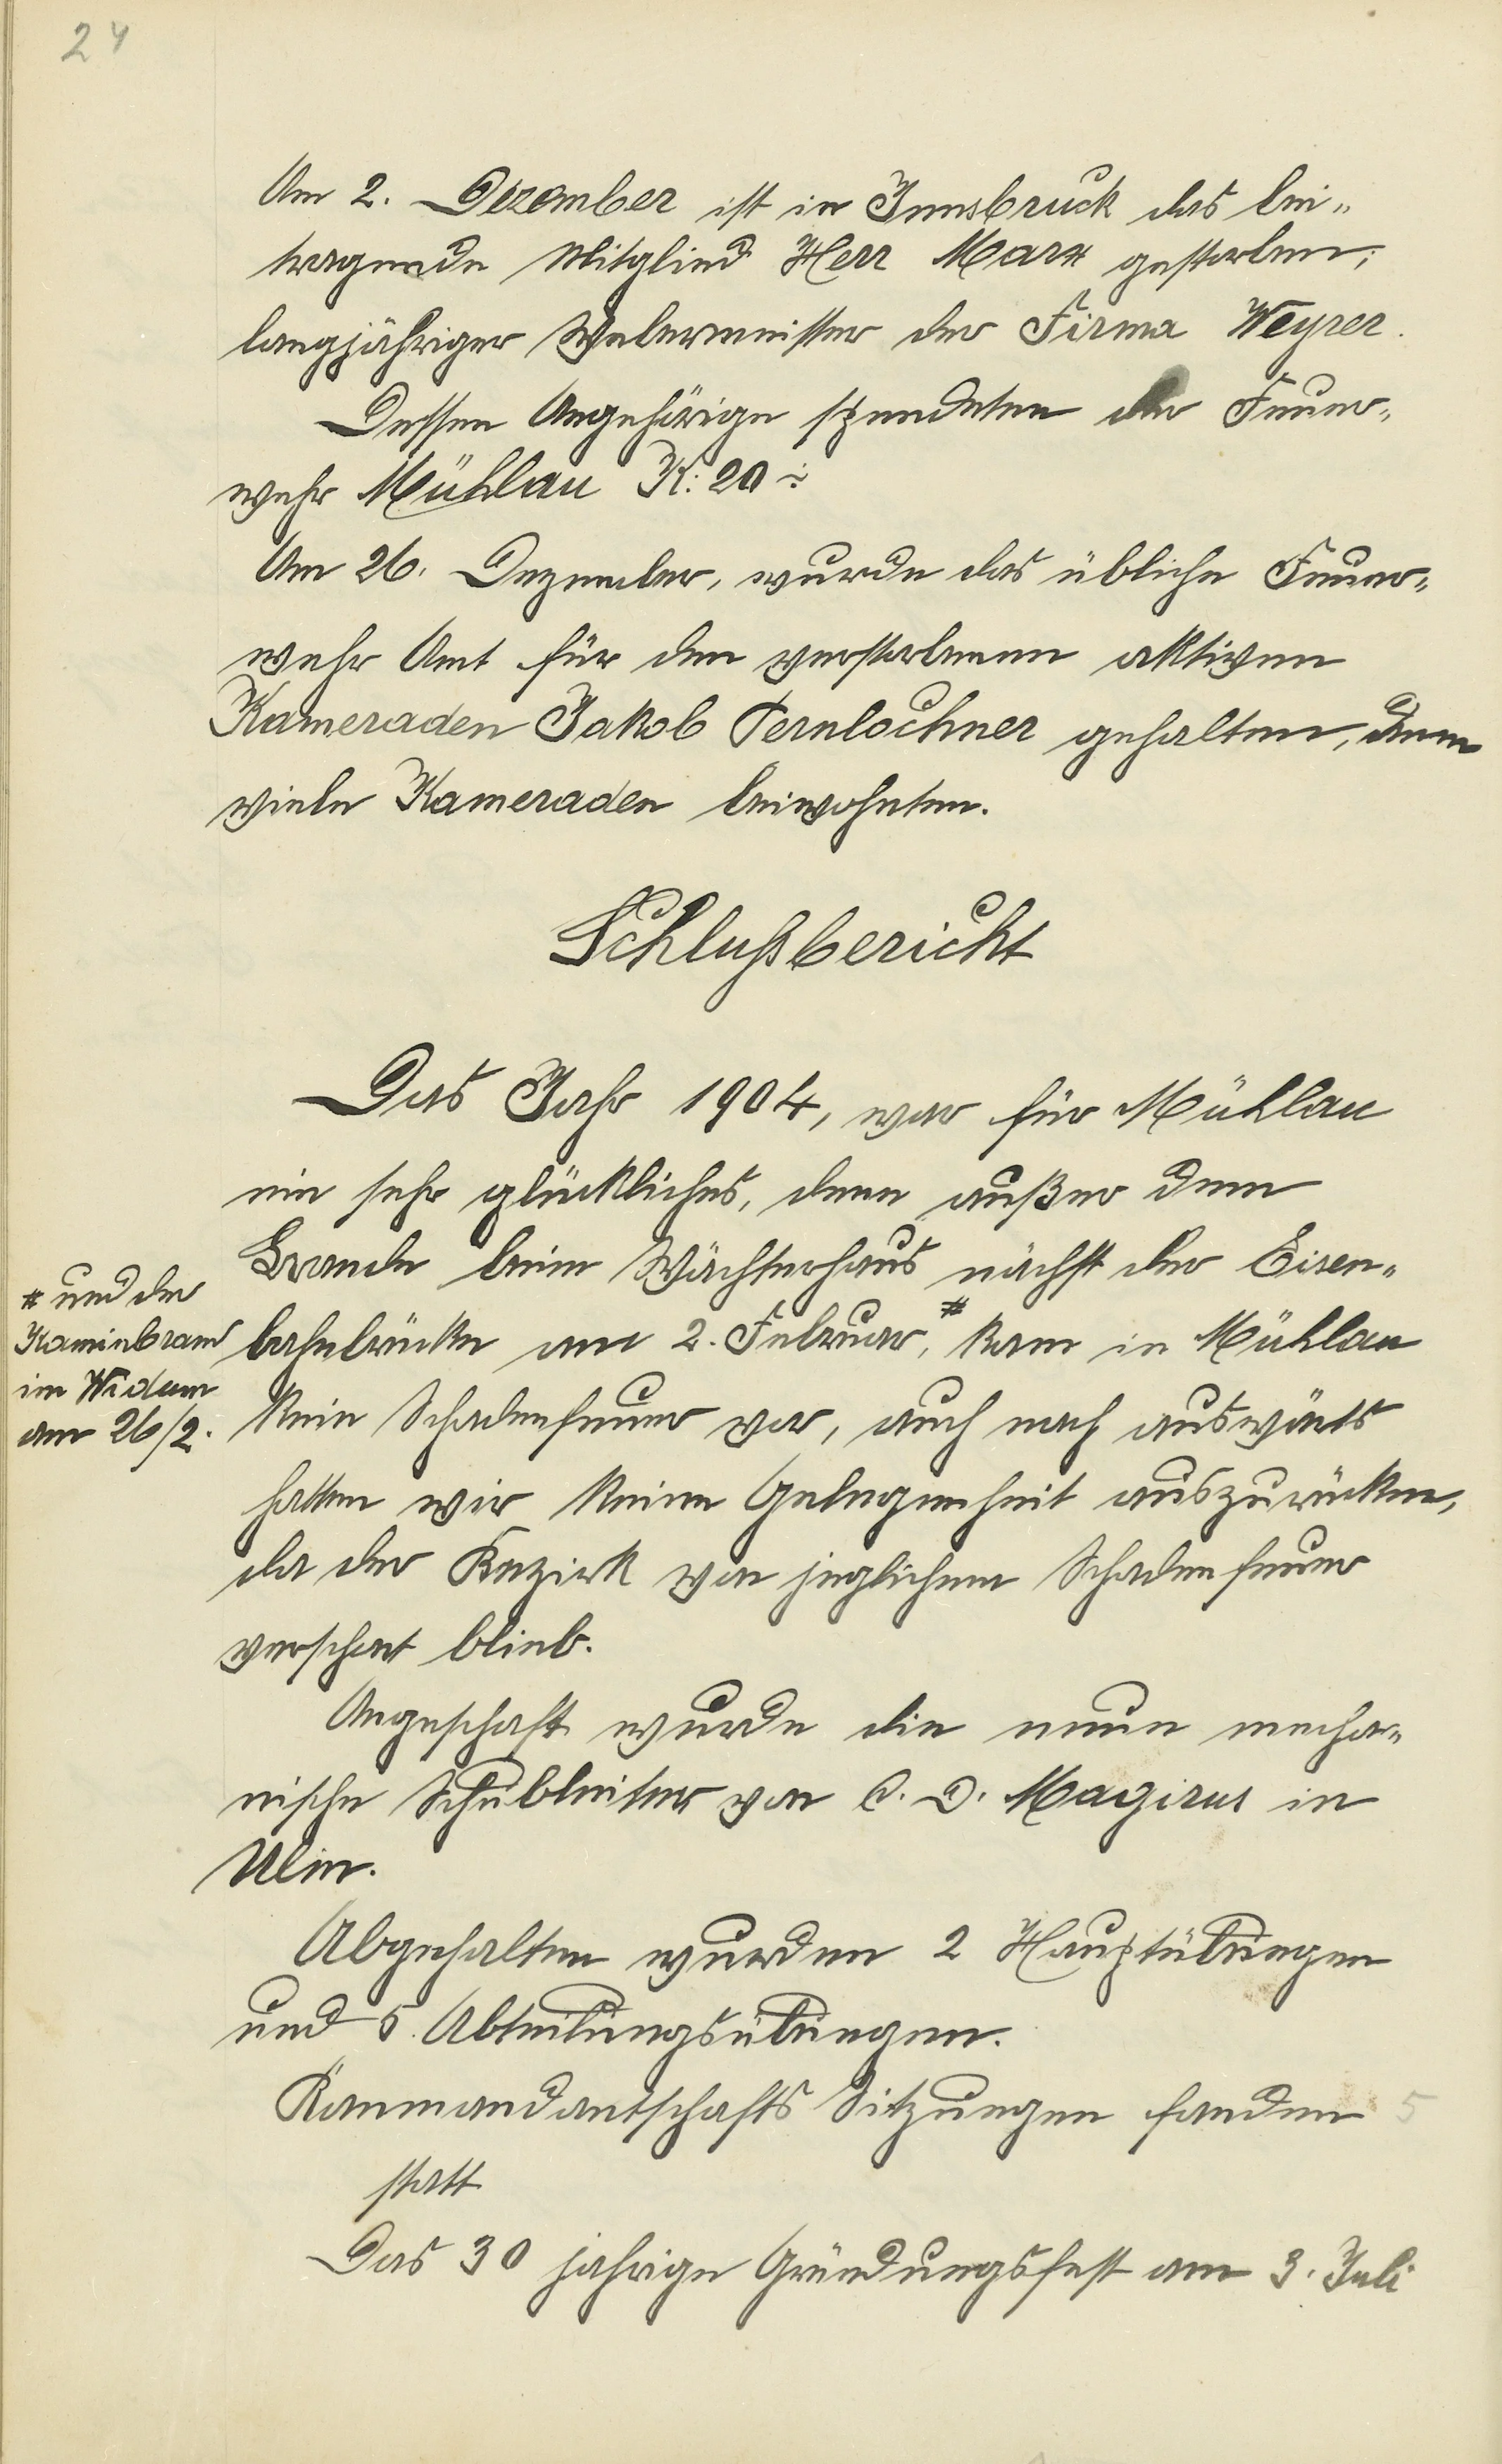 24
Am 2. Dezember ist in Innsbruck das bei„
tragende Mitglied Herr Marx gestorben;
langjähriger Webermeister der Firma Weyrer.
Dessen Angehörige spendeten der Feuer„
wehr Mühlau K: 20 ÷
Am 26. Dezember, wurde das übliche Feuer„
wehr Amt für den verstorbenen aktiven
Kameraden Jakob Fernlochner gehalten, dem
viele Kameraden beiwohnten.
Schlußbericht
Das Jahr 1904, war für Mühlau
ein sehr glückliches, denn außer dem
Brande beim Wächterhaus nächst der Eisen„
bahnbrücke am 2. Februar, # kam in Mühlau
# und der
Kaminbrand
im Widum
am 26/2.
kein Schadenfeuer vor, auch nach auswärts
hatten wir keine Gelegenheit auszurücken,
da der Bezirk von jeglichem Schadenfeuer
verschont blieb.
Angeschaft wurde die neue mecha„
nische Schubleiter von C. D. Magirus in
Ulm.
Abgehalten wurden 2 Hauptübungen
und 5. Abteilungsübungen.
Kommandantschafts Sitzungen fanden 5
statt
Das 30 jahrige Gründungsfest am 3. Juli